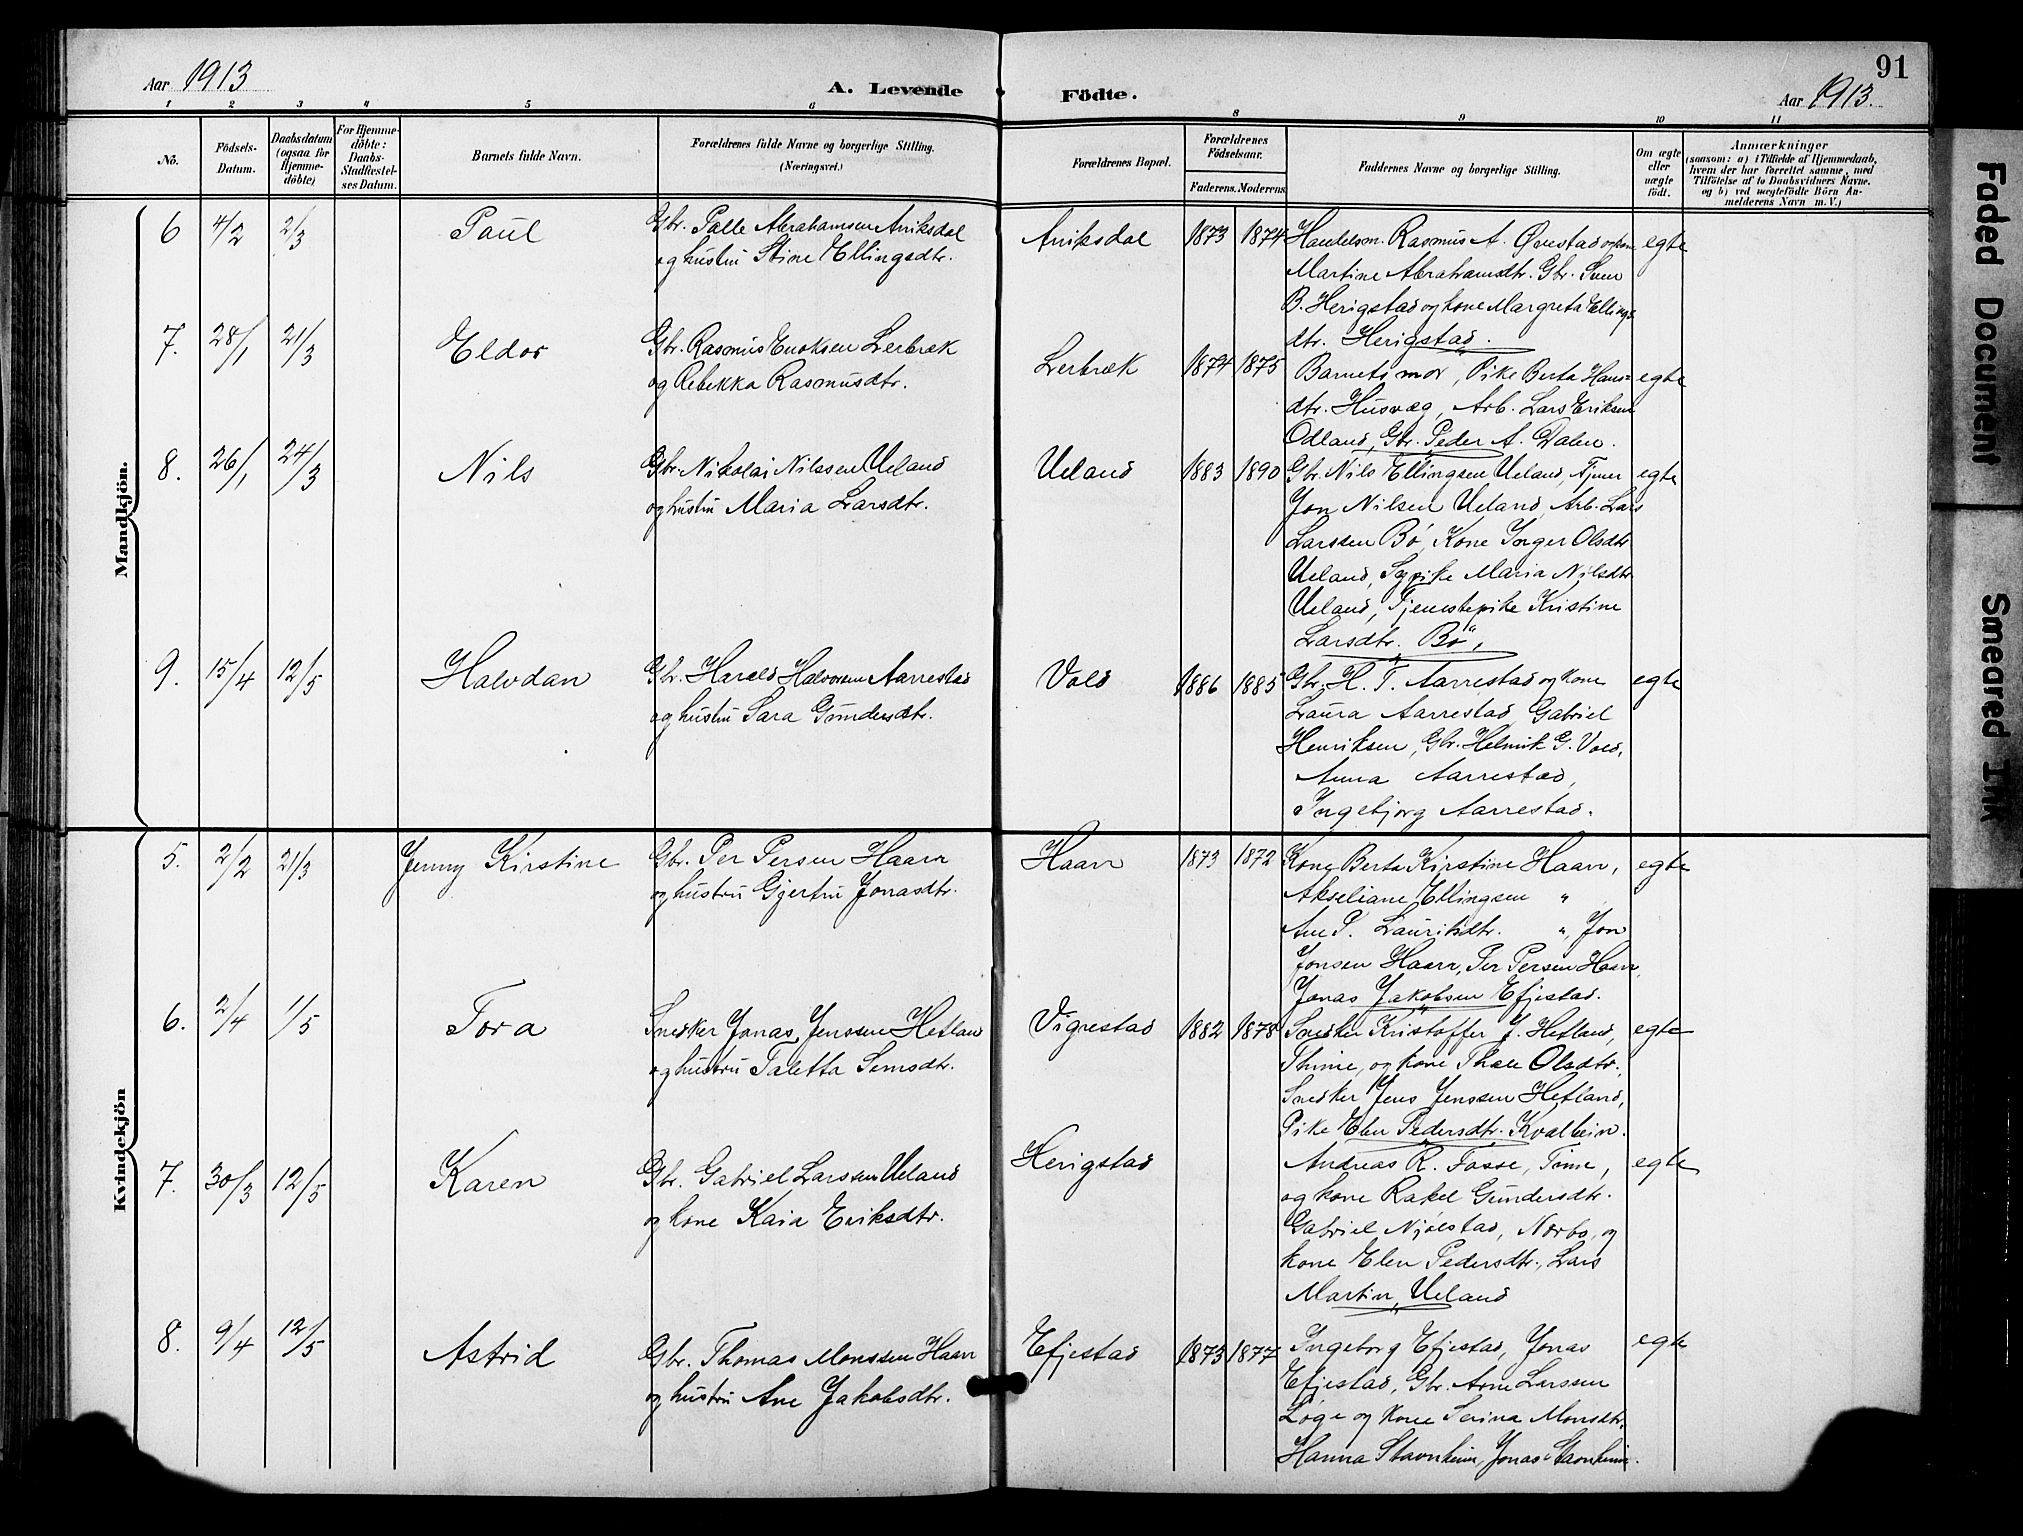 91
Aar 1913
A. Levende
Födte.
Aar 1913.
1 2 3 4 5 6 8 9 10 11
No.
Födsels-Datum.
Daabsdatum (ogsaa for Hjemme-döbte)
For Hjemme-döbte: Daabs-Stadfæstel-ses Datum.
Barnets fulde Navn.
Forældrenes fulde Navne og borgerlige Stilling.
(Næringsvei.)
Forældrenes Bopæl.
Forældrenes Födselsaar.
Faderens. Moderens.
Faddernes Navne og borgerlige Stilling.
Om ægte eller uægte födt.
Anmærkninger
(saasom: a) i Tilfælde af Hjemmedaab,
hvem der har forrettet samme, med
Tilföielse af to Daabsvidners Navne.
og b) ved uægtefödte Börn An-
melderens Navn m. V.)
Mandkjön.
6 4/2 2/3 Paul Gbr. Palle Abrahamsen Aniksdal Aniksdal 1873 1874 Handelsm. Rasmus A. Øvestad og kone egte
og hustru Stine Ellingsdtr. Martine Abrahamsdtr. Gbr. Sven
B. Herigstad og kone Margreta Ellings
dtr. Herigstad.
7. 28/1 21/3 Eldor Gbr. Rasmus Enoksen Lerbræk Lerbræk 1874 1875 Barnets mor, Pike Berta Hans= egte
og Rebekka Rasmusdtr. dtr. Husvæg, Arb. Lars Eriksen
Odland, Gbr. Peder A. Dalen.
8. 26/1 24/3 Nils Gbr. Nikolai Nilssen Ueland Ueland 1883 1890 Gbr. Nils Ellingsen Ueland, Tjener egte
og hustru Maria Larsdtr. Jon Nilsen Ueland, Arb. Lars
Larssen Bø, Kone Inger Olsdtr.
Ueland, Sypike Maria Nilsdtr.
Ueland, Tjenestepike Kristine
Larsdtr. Bø,
9. 15/4 12/5 Halvdan Gbr. Harald Halvorsen Aarrestad Vold 1886 1885 Gbr. H. T. Aarrestad og kone egte
og hustru Sara Gundersdtr. Laura Aarrestad, Gabriel
Henriksen, Gbr. Helmik G. Vold,
Anna Aarrestad,
Ingebjorg Aarrestad.
Kvindekjön
5. 2/2 21/3 Jenny Kirstine Gbr. Per Persen Haarr Haarr 1873 1872 Kone Berta Kirstine Haarr, egte
og hustru Gjertru Jonasdtr. Akseliane Ellingsen "
Ane P. Lauritsdtr. ", Jon
Jonsen Haarr, Per Persen Haarr
Jonas Jakobsen Efjestad.
6. 2/4 1/5 Tora Snedker Jonas Jenssen Hetland Vigrestad 1882 1878 Snedker Kristoffer J. Hetland, egte
og hustru Taletta Semsdtr. Thime, og kone Thale Olsdtr.
Snedker Jens Jenssen Hetland,
Pike Elen Pedersdtr. Kvalhein.
7. 30/3 12/5 Karen Gbr. Gabriel Larssen Ueland Herigstad Andreas R. Fosse, Time, egte
og kone Kaia Eriksdtr. og kone Rakel Gundersdtr.
Gabriel Njølstad, Nærbø, og
kone Elen Pedersdtr., Lars
Martin Ueland
8. 9/4 12/5 Astrid Gbr. Thomas Monssen Haarr Efjestad 1873 1877 Ingeborg Efjestad, Jonas egte
og hustru Ane Jakobsdtr. Efjestad, Gbr. Arne Larssen
Løge og kone Serina Monsdtr.
Hanna Stavnheim, Jonas Stavnheim.
Faded Document
Smeared Ink